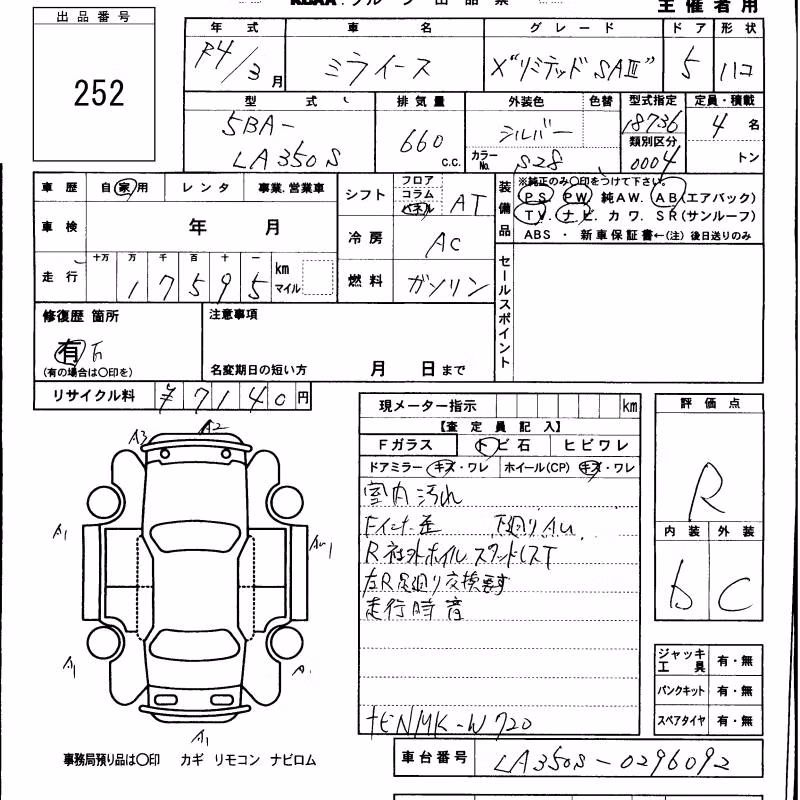 出品番号
252
主催者用
年式 車名 グレード ドア 形状
R4/3月 ミライース X"リミテッドSAⅢ" 5 ハコ
型式 排気量 外装色 色替 型式指定 定員・積載
5BA- 660 シルバー 18736 4名
LA350S c.c. カラーNo. S28 類別区分 0004 トン
車歴 自家用 レンタ 事業.営業車
シフト フロア コラム パネル AT
装備品 ※純正のみ〇印をつけて下さい。
PS PW 純AW. AB(エアバッグ)
TV. ナビ. カワ. SR(サンルーフ)
ABS ・ 新車保証書←(注) 後日送りのみ
車検 年 月
冷房 AC
走行 十万 万 千 百 十 一
17595 km マイル
燃料 ガソリン
セールスポイント
修復歴 箇所
有 否
(有の場合は〇印を)
注意事項
名変期日の短い方 月 日まで
リサイクル料 ¥7140円
現メーター指示 km
【査定員記入】
Fガラス トビ石 ヒビワレ
ドアミラー キズ・ワレ ホイール(CP) キズ・ワレ
室内汚れ
下廻りAu
R社外ホイル
左R足廻り交換要す
走行時音
TENMK-W720
評価点
R
内装 外装
b C
ジャッキ工具 有・無
パンクキット 有・無
スペアタイヤ 有・無
A3 A2
A1 Au1
A1 A
A1
事務局預り品は〇印 カギ リモコン ナビロム
車台番号 LA350S-0296092